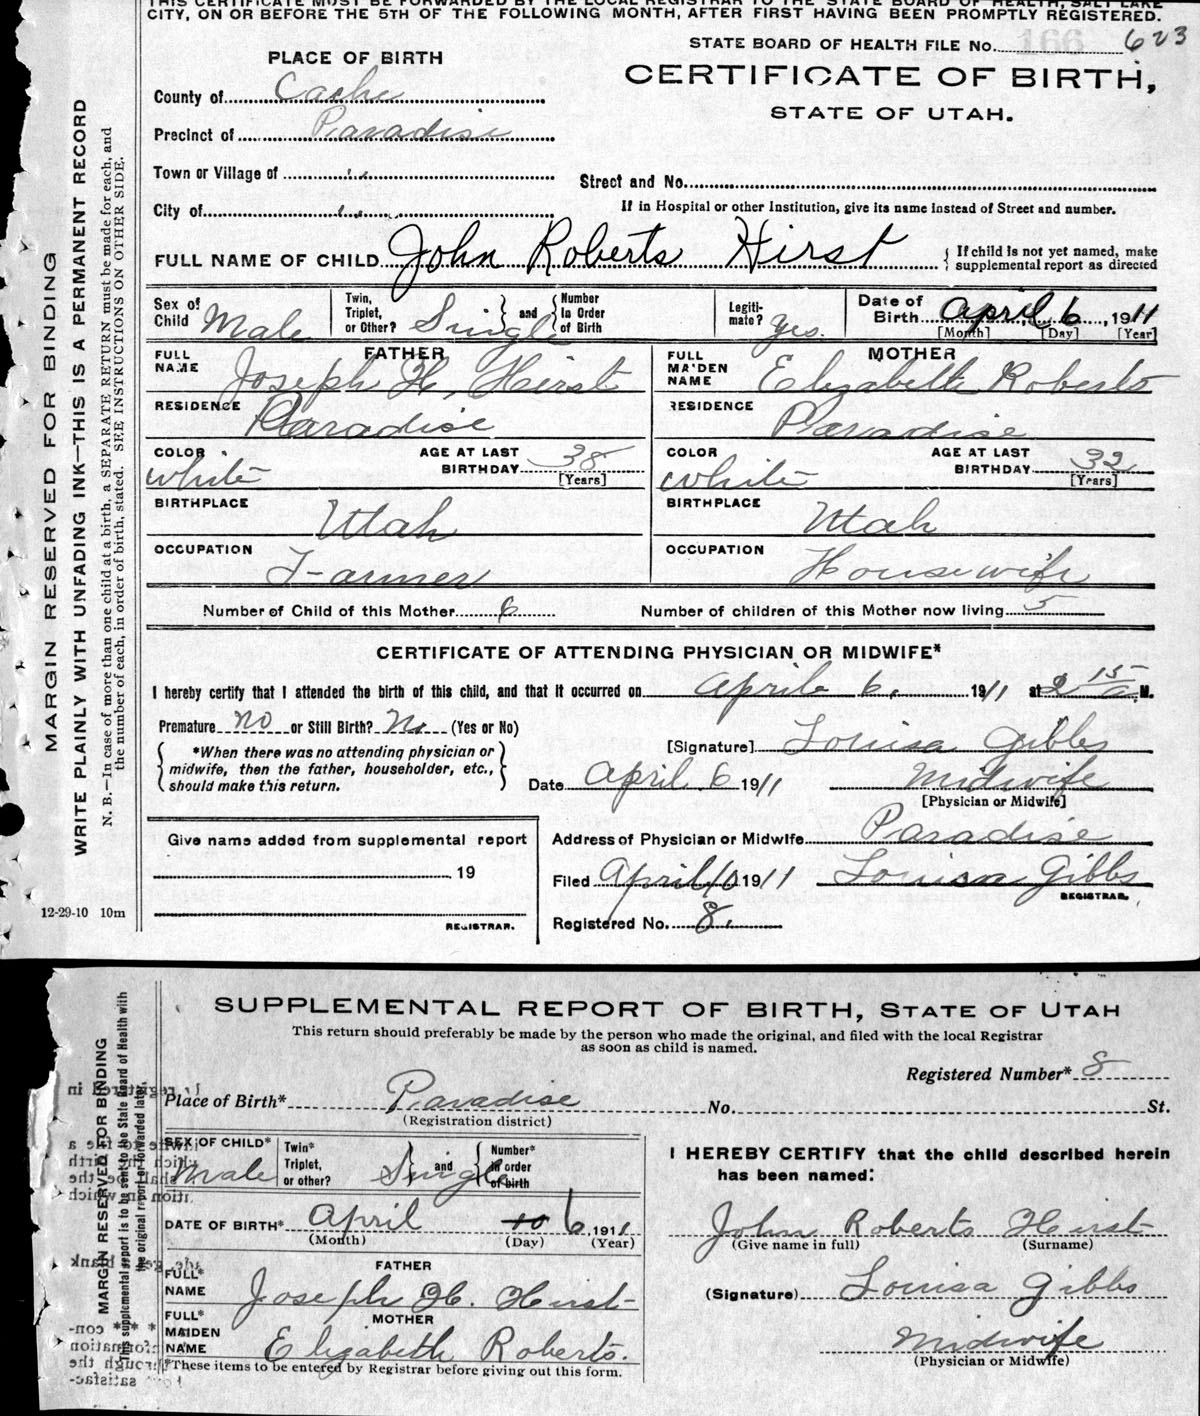 THIS CERTIFICATE MUST BE FORWARDED BY THE LOCAL REGISTRAR TO THE STATE BOARD OF HEALTH, SALT LAKE
CITY, ON OR BEFORE THE 5TH OF THE FOLLOWING MONTH, AFTER FIRST HAVING BEEN PROMPTLY REGISTERED.
STATE BOARD OF HEALTH FILE No. 166 623
PLACE OF BIRTH
CERTIFICATE OF BIRTH,
STATE OF UTAH.
County of Cache
Precinct of Paradise
Town or Village of "
Street and No.
City of "
If in Hospital or other Institution, give its name instead of Street and number.
FULL NAME OF CHILD John Roberts Hirst { If child is not yet named, make supplemental report as directed
Sex of Child Male
Twin, Triplet, or Other? Single } and { Number In Order of Birth
Legiti-mate? yes.
Date of Birth April 6, 1911
[Month] [Day] [Year]
FATHER
FULL NAME Joseph H. Hirst
RESIDENCE Paradise
COLOR White
AGE AT LAST BIRTHDAY 38
[Years]
BIRTHPLACE Utah
OCCUPATION Farmer
MOTHER
FULL MAIDEN NAME Elizabeth Roberts
RESIDENCE Paradise
COLOR White
AGE AT LAST BIRTHDAY 32
[Years]
BIRTHPLACE Utah
OCCUPATION Housewife
Number of Child of this Mother 6
Number of children of this Mother now living 5
CERTIFICATE OF ATTENDING PHYSICIAN OR MIDWIFE*
I hereby certify that I attended the birth of this child, and that it occurred on April 6, 1911 at 2 15 a M.
Premature no or Still Birth? No (Yes or No)
{ *When there was no attending physician or
midwife, then the father, householder, etc.,
should make this return. }
[Signature] Louisa Gibbs
Date April 6 1911 Midwife
[Physician or Midwife]
Give name added from supplemental report
19
REGISTRAR.
Address of Physician or Midwife Paradise
Filed April 10 1911 Louisa Gibbs
REGISTRAR.
Registered No. 8.
MARGIN RESERVED FOR BINDING
WRITE PLAINLY WITH UNFADING INK—THIS IS A PERMANENT RECORD
N. B.—In case of more than one child at a birth, a SEPARATE RETURN must be made for each, and
the number of each, in order of birth, stated. SEE INSTRUCTIONS ON OTHER SIDE.
12-29-10 10m
SUPPLEMENTAL REPORT OF BIRTH, STATE OF UTAH
This return should preferably be made by the person who made the original, and filed with the local Registrar
as soon as child is named.
Registered Number* 8
Place of Birth* Paradise No. St.
(Registration district)
SEX OF CHILD* Male
Twin* Triplet, or other? Single } and { Number* in order of birth
DATE OF BIRTH* April 10 6, 1911
(Month) (Day) (Year)
FATHER
FULL* NAME Joseph H. Hirst
MOTHER
FULL* MAIDEN NAME Elizabeth Roberts.
*These items to be entered by Registrar before giving out this form.
I HEREBY CERTIFY that the child described herein
has been named:
John Roberts Hirst
(Give name in full) (Surname)
(Signature) Louisa Gibbs
Midwife
(Physician or Midwife)
MARGIN RESERVED FOR BINDING
This supplemental report is to be sent to the State Board of Health with
the original report or forwarded later.